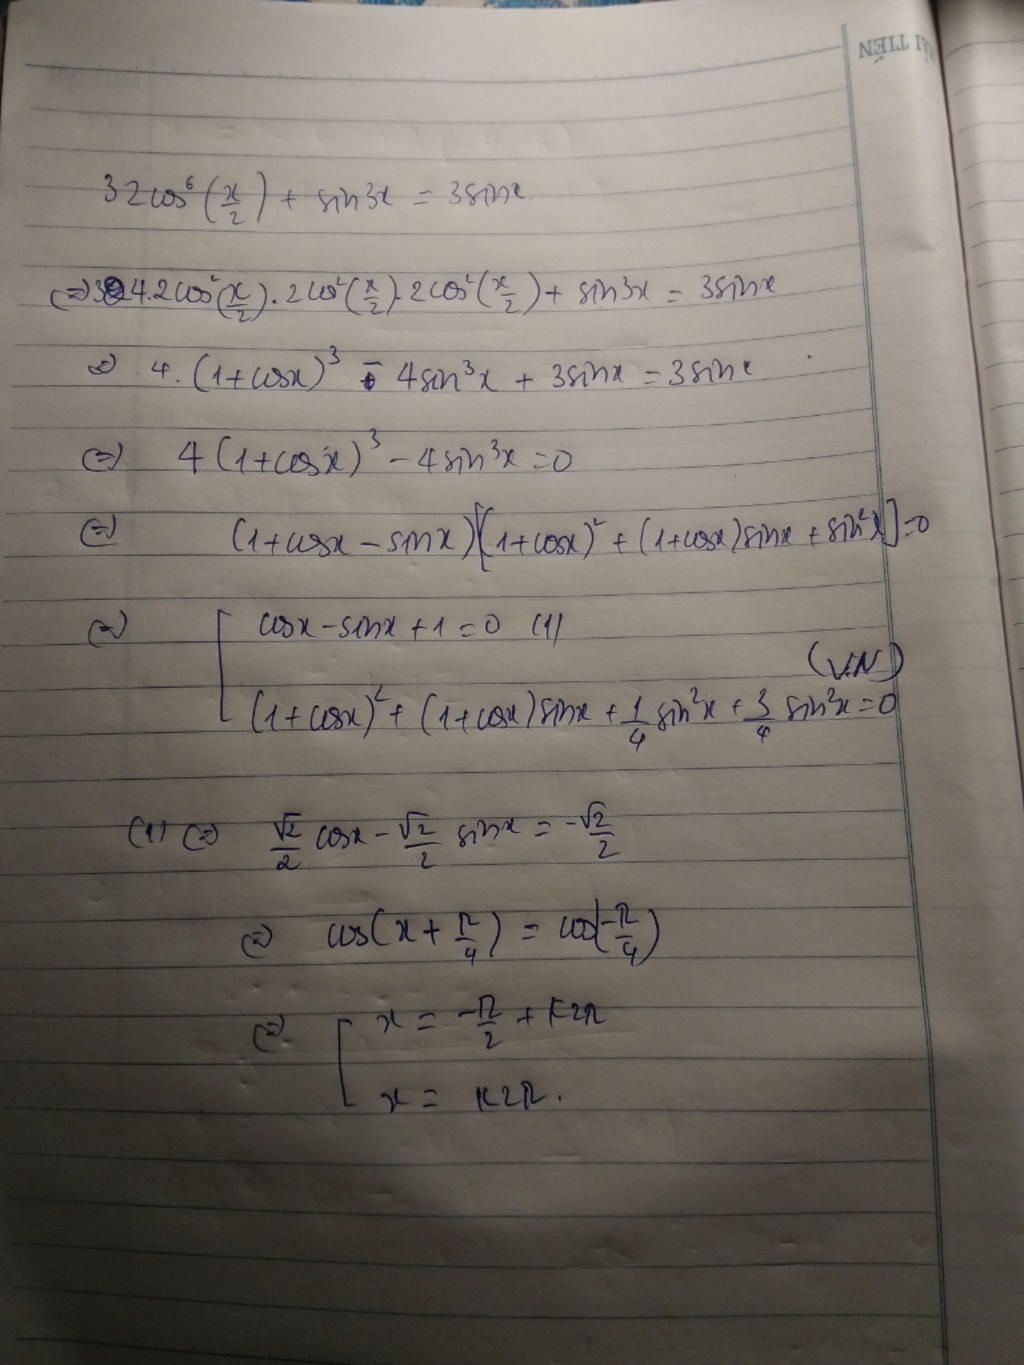 ẢI TIẾN
32cos⁶(x/2) + sin3x = 3sinx
(=) 4.2cos²(x/2).2cos²(x/2).2cos²(x/2) + sin3x = 3sinx
(=) 4.(1+cosx)³ - 4sin³x + 3sinx = 3sinx
(=) 4(1+cosx)³ - 4sin³x = 0
(=) (1+cosx - sinx)[(1+cosx)² + (1+cosx)sinx + sin²x] = 0
(=) [ cosx - sinx + 1 = 0 (1)
(VN)
(1+cosx)² + (1+cosx)sinx + 1/4 sin²x + 3/4 sin²x = 0
(1) (=) √2/2 cosx - √2/2 sinx = -√2/2
(=) cos(x + π/4) = cos(-π/4)
(=) [ x = -π/2 + k2π
x = k2π.